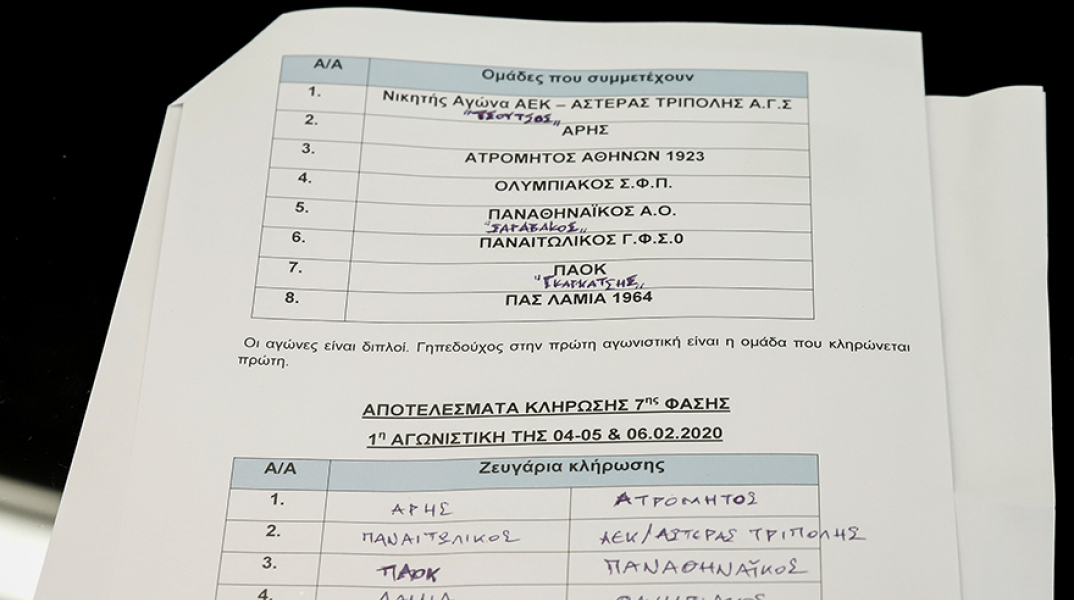 Α/Α Ομάδες που συμμετέχουν
1. Νικητής Αγώνα ΑΕΚ – ΑΣΤΕΡΑΣ ΤΡΙΠΟΛΗΣ Α.Γ.Σ
"ΤΣΟΥΤΣΟΣ"
2. ΑΡΗΣ
3. ΑΤΡΟΜΗΤΟΣ ΑΘΗΝΩΝ 1923
4. ΟΛΥΜΠΙΑΚΟΣ Σ.Φ.Π.
5. ΠΑΝΑΘΗΝΑΪΚΟΣ Α.Ο.
"ΣΑΡΑΒΑΚΟΣ"
6. ΠΑΝΑΙΤΩΛΙΚΟΣ Γ.Φ.Σ.0
7. ΠΑΟΚ
"ΓΚΑΓΚΑΤΣΗΣ"
8. ΠΑΣ ΛΑΜΙΑ 1964
Οι αγώνες είναι διπλοί. Γηπεδούχος στην πρώτη αγωνιστική είναι η ομάδα που κληρώνεται
πρώτη.
ΑΠΟΤΕΛΕΣΜΑΤΑ ΚΛΗΡΩΣΗΣ 7ης ΦΑΣΗΣ
1η ΑΓΩΝΙΣΤΙΚΗ ΤΗΣ 04-05 & 06.02.2020
Α/Α Ζευγάρια κλήρωσης
1. ΑΡΗΣ ΑΤΡΟΜΗΤΟΣ
2. ΠΑΝΑΙΤΩΛΙΚΟΣ ΑΕΚ/ΑΣΤΕΡΑΣ ΤΡΙΠΟΛΗΣ
3. ΠΑΟΚ ΠΑΝΑΘΗΝΑΪΚΟΣ
4. ΛΑΜΙΑ ΟΛΥΜΠΙΑΚΟΣ